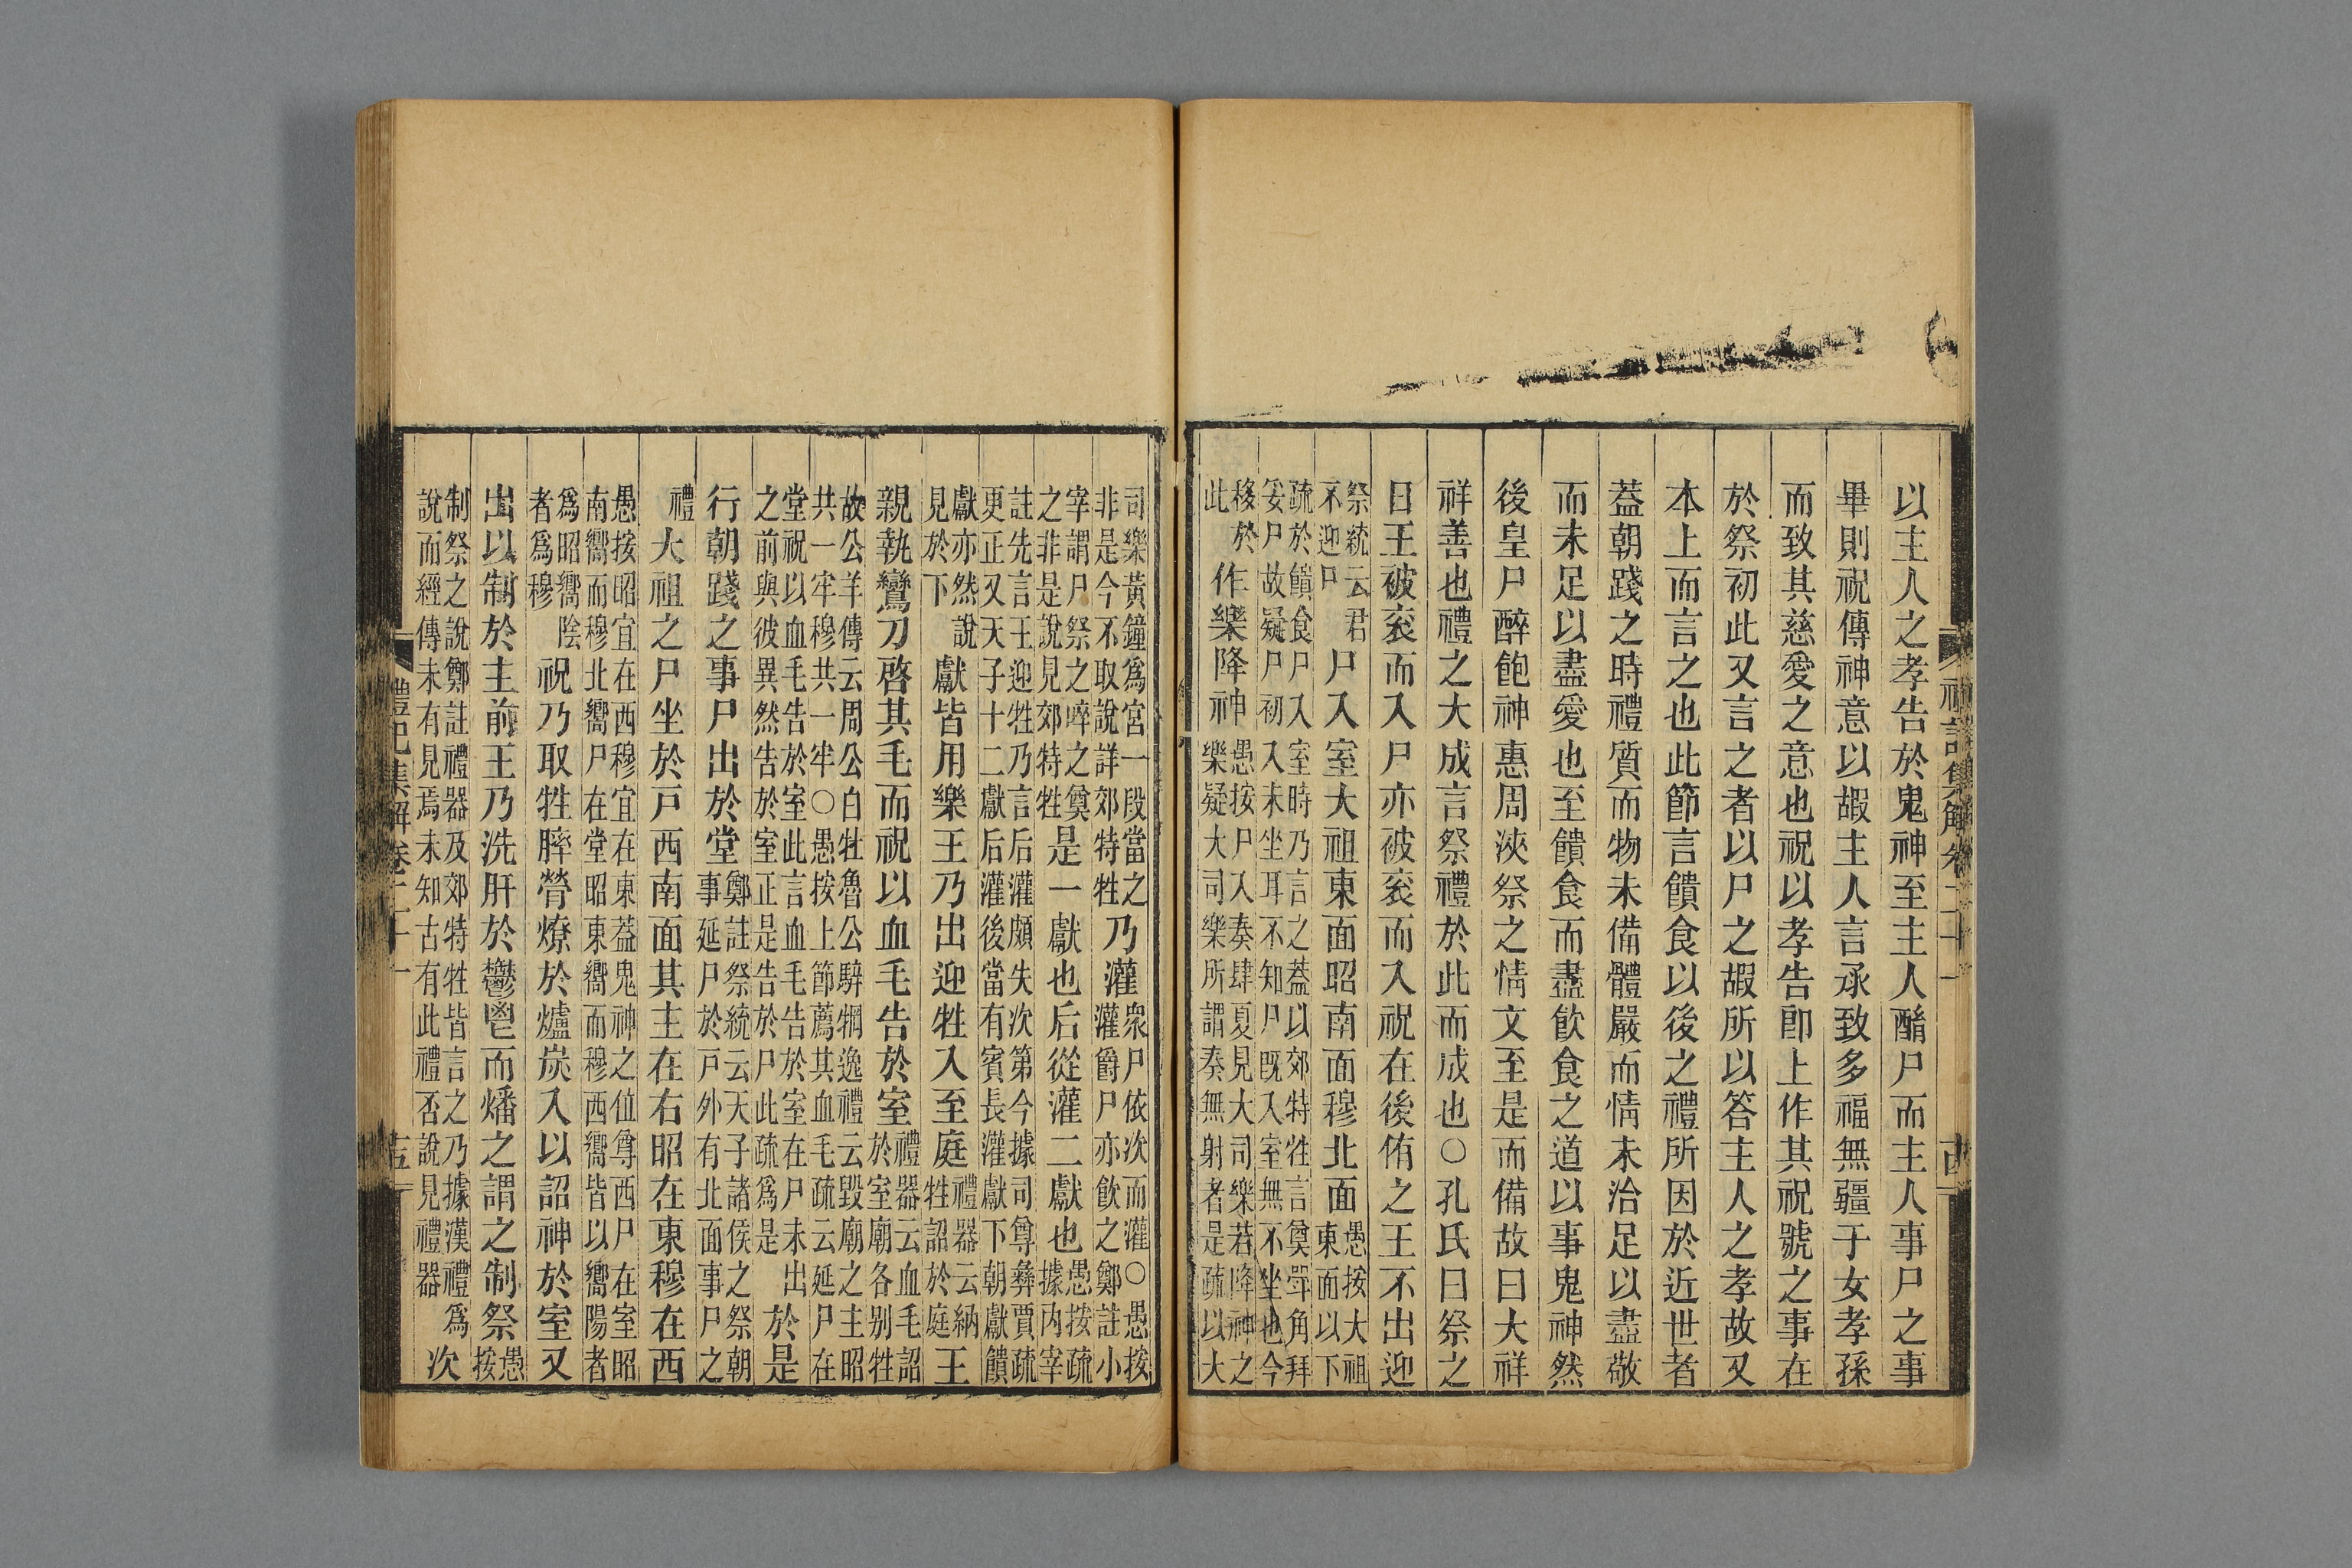 以主人之孝告於鬼神至主人酳尸而主人事尸之事
畢則祝傳神意以嘏主人言承致多福無疆于女孝孫
而致其慈愛之意也祝以孝告卽上作其祝號之事在
於祭初此又言之者以尸之嘏所以答主人之孝故又
本上而言之也此節言饋食以後之禮所因於近世者
蓋朝踐之時禮質而物未備體嚴而情未洽足以盡敬
而未足以盡愛也至饋食而盡飮食之道以事鬼神然
後皇尸醉飽神惠周浹祭之情文至是而備故曰大祥
祥善也禮之大成言祭禮於此而成也○孔氏曰祭之
日王被袞而入尸亦被袞而入祝在後侑之王不出迎
祭統云君
不迎尸
尸入室大祖東面昭南面穆北面
愚按大祖
東面以下
疏於饋食尸入室時乃言之蓋以郊特牲言奠斝角拜
妥尸故疑尸初入未坐耳不知尸旣入室無不坐也今
移於
此
作樂降神
愚按尸入奏肆夏見大司樂若降神之
樂疑大司樂所謂奏無射者是疏以大
司樂黃鐘爲宮一段當之
非是今不取說詳郊特牲
乃灌
衆尸依次而灌○愚按
灌爵尸亦飮之鄭註小
宰謂尸祭之啐之奠
之非是說見郊特牲
是一獻也后從灌二獻也
愚按疏
據內宰
註先言王迎牲乃言后灌頗失次第今據司尊彝賈疏
更正又天子十二獻后灌後當有賓長灌獻下朝獻饋
獻亦然說
見於下
獻皆用樂王乃出迎牲入至庭
禮器云納
牲詔於庭
王
親執鸞刀啓其毛而祝以血毛告於室
禮器云血毛詔
於室廟各別牲
故公羊傳云周公白牡魯公騂犅逸禮云毀廟之主昭
共一牢穆共一牢○愚按上節薦其血毛疏云延尸在
堂祝以血毛告於室此言血毛告於室在尸未出
之前與彼異然告於室正是告於尸此疏爲是
於是
行朝踐之事尸出於堂
鄭註祭統云天子諸侯之祭朝
事延尸於戶外有北面事尸之
禮
大祖之尸坐於戶西南面其主在右昭在東穆在西
愚按昭宜在西穆宜在東蓋鬼神之位尊西尸在室昭
南嚮而穆北嚮尸在堂昭東嚮而穆西嚮皆以嚮陽者
爲昭嚮陰
者爲穆
祝乃取牲膟膋燎於爐炭入以詔神於室又
出以制於主前王乃洗肝於鬱鬯而燔之謂之制祭
愚
按
制祭之說鄭註禮器及郊特牲皆言之乃據漢禮爲
說而經傳未有見焉未知古有此禮否說見禮器
次
禮記集解卷二十一